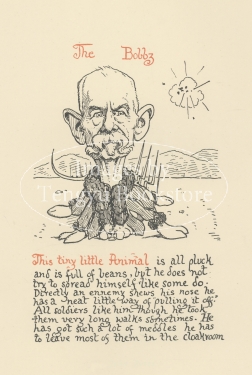 The Bobbz
This tiny little Animal is all pluck
and is full of beans, but he does not
try to spread himself like some do.
Directly an ennemy shews his nose he
has a "neat little way of pulling it off."
All soldiers like him though he took
them very long walks sometimes. He
has got such a lot of meddles he has
to leave most of them in the cloakroom